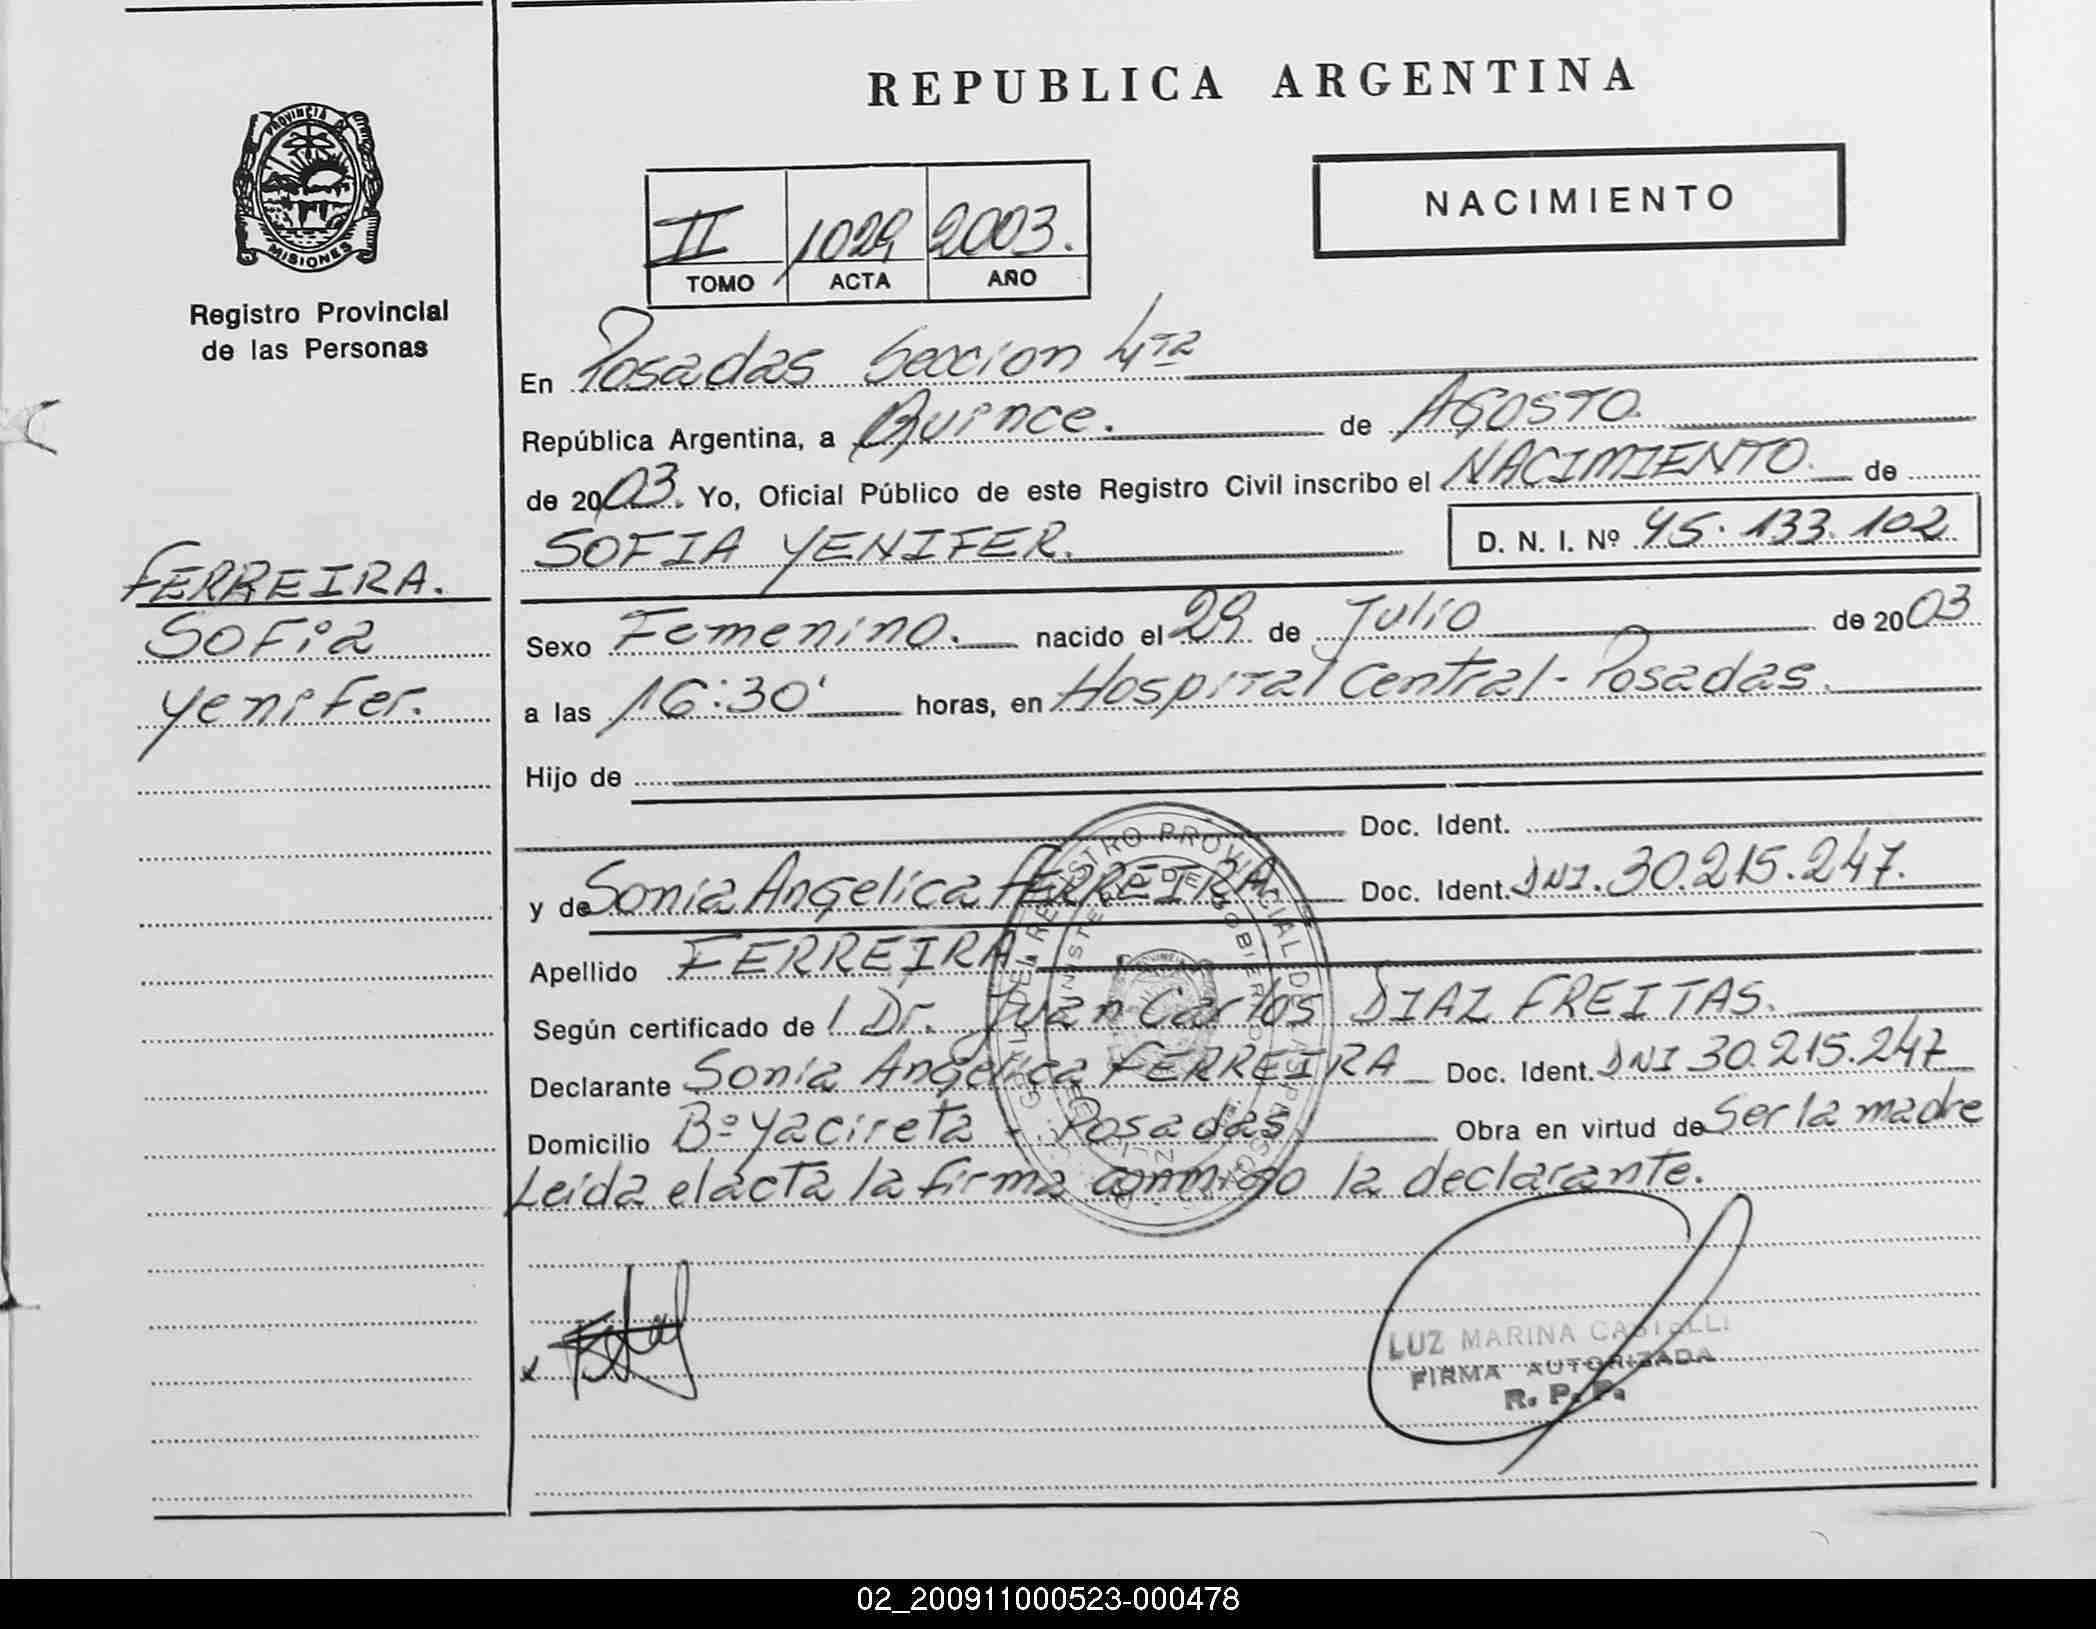 REPUBLICA ARGENTINA
PROVINCIA DE
MISIONES
Registro Provincial
de las Personas
NACIMIENTO
II 1029 2003.
TOMO ACTA AÑO
En Posadas Seccion 4ta
República Argentina, a Quince. de AGOSTO.
de 2003. Yo, Oficial Público de este Registro Civil inscribo el NACIMIENTO. de
SOFIA YENIFER. D. N. I. Nº 45.133.102
FERREIRA.
Sofia
Yenifer.
Sexo Femenino. nacido el 29 de Julio de 2003
a las 16:30' horas, en Hospital Central - Posadas.
Hijo de
Doc. Ident.
y de Sonia Angelica FERREIRA Doc. Ident. DNI. 30.215.247.
Apellido FERREIRA.
Según certificado de l Dr. Juan Carlos DIAZ FREITAS.
Declarante Sonia Angelica FERREIRA Doc. Ident. DNI 30.215.247
Domicilio Bº Yacireta - Posadas Obra en virtud de Ser la madre
Leida el acta la firma conmigo la declarante.
REGISTRO PROVINCIAL DE
MINISTERIO DE GOBIERNO
LUZ MARINA CASTELLI
FIRMA AUTORIZADA
R. P. P.
02_200911000523-000478